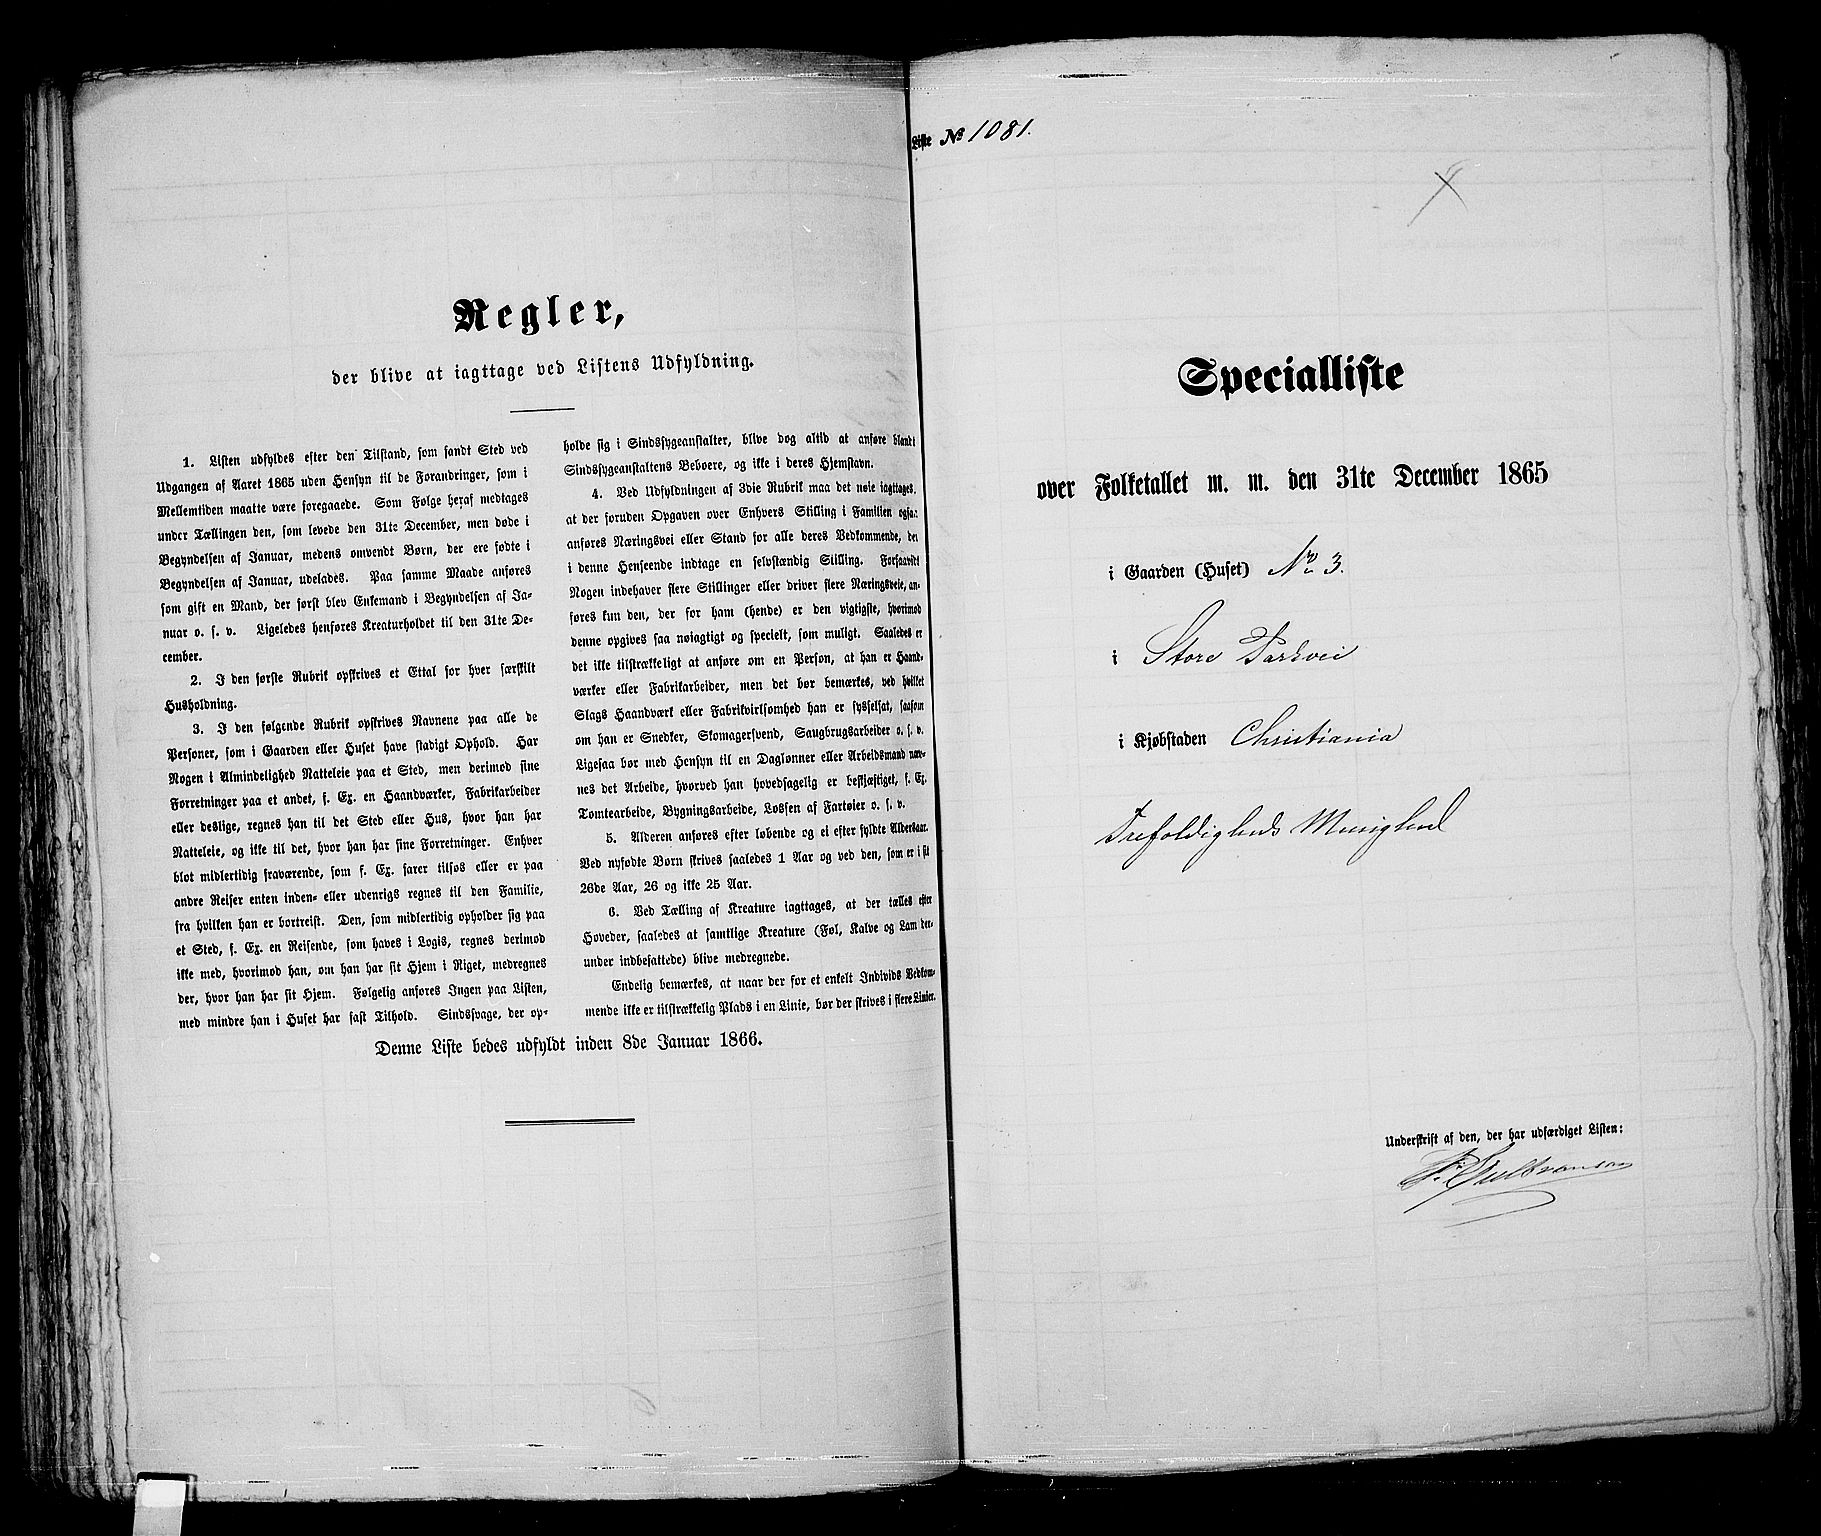 Regler,
der blive at iagttage ved Listens Udfyldning.
1. Listen udfyldes efter den Tilstand, som fandt Sted ved
Udgangen af Aaret 1865 uden Hensyn til de Forandringer, som i
Mellemtiden maatte være foregaaede. Som Følge heraf medtages
under Tællingen den, som levede den 31te December, men døde i
Begyndelsen af Januar, medens omvendt Børn, der ere fødte i
Begyndelsen af Januar, udelades. Paa samme Maade anføres
som gift en Mand, der først blev Enkemand i Begyndelsen af Ja-
nuar o. s. v. Ligeledes henføres Kreaturholdet til den 31te De-
cember.
2. I den første Rubrik opskrives et Ettal for hver særskilt
Husholdning.
3. I den følgende Rubrik opskrives Navnene paa alle de
Personer, som i Gaarden eller Huset have stadigt Ophold. Har
Nogen i Almindelighed Natteleie paa et Sted, men derimod sine
Forretninger paa et andet, f. Ex. en Haandværker, Fabrikarbeider
eller deslige, regnes han til det Sted eller Hus, hvor han har
Natteleie, og ikke til det, hvor han har sine Forretninger. Enhver
blot midlertidig fraværende, som f. Ex. farer tilsøs eller er paa
andre Reiser enten inden- eller udenrigs regnes til den Familie,
fra hvilken han er bortreist. Den, som midlertidig opholder sig paa
et Sted, f. Ex. en Reisende, som haves i Logis, regnes derimod
ikke med, hvorimod han, om han har sit Hjem i Riget, medregnes
der, hvor han har sit Hjem. Følgelig anføres Ingen paa Listen,
med mindre han i Huset har fast Tilhold. Sindssvage, der op-
holde sig i Sindssygeanstalter, blive dog altid at anføre blandt
Sindssygeanstaltens Beboere, og ikke i deres Hjemstavn.
4. Ved Udfyldningen af 3die Rubrik maa det nøie iagttages,
at der foruden Opgaven over Enhvers Stilling i Familien ogsaa
anføres Næringsvei eller Stand for alle deres Vedkommende, der
i denne Henseende indtage en selvstændig Stilling. Forsaavidt
Nogen indehaver flere Stillinger eller driver flere Næringsveie, an-
føres kun den, der for ham (hende) er den vigtigste, hvorimod
denne opgives saa nøiagtigt og specielt, som muligt. Saaledes er
det ikke tilstrækkeligt at anføre om en Person, at han er Haand-
værker eller Fabrikarbeider, men det bør bemærkes, ved hvilket
Slags Haandværk eller Fabrikvirksomhed han er sysselsat, saasom
om han er Snedker, Skomagersvend, Saugbrugsarbeider o. s. v.
Ligesaa bør med Hensyn til en Daglønner eller Arbeidsmand næv-
nes det Arbeide, hvorved han hovedsagelig er beskjæftiget, f. Ex.
Tomtearbeide, Bygningsarbeide, Lossen af Fartøier o. s. v.
5. Alderen anføres efter løbende og ei efter fyldte Aldersaar.
Ved nyfødte Børn skrives saaledes 1 Aar og ved den, som er i sit
26de Aar, 26 og ikke 25 Aar.
6. Ved Tælling af Kreature iagttages, at der tælles efter
Hoveder, saaledes at samtlige Kreature (Føl, Kalve og Lam der-
under indbefattede) blive medregnede.
Endelig bemærkes, at naar der for et enkelt Individs Vedkom-
mende ikke er tilstrækkelig Plads i en Linie, bør der skrives i flere Linier.
Denne Liste bedes udfyldt inden 8de Januar 1866.
Liste № 1081.
Specialliste
over Folketallet m. m. den 31te December 1865
i Gaarden (Huset) No 3.
i Store Parkvei
i Kjøbstaden Christiania
Trefoldigheds Menighed
Underskrift af den, der har udfærdiget Listen: